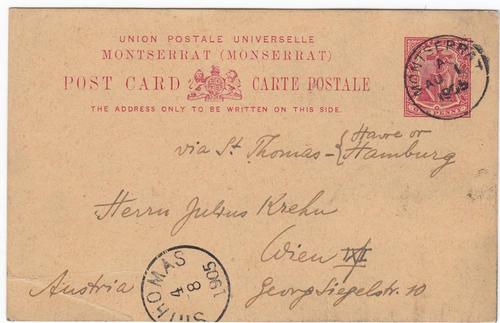 UNION POSTALE UNIVERSELLE
MONTSERRAT (MONSERRAT)
POST CARD CARTE POSTALE
THE ADDRESS ONLY TO BE WRITTEN ON THIS SIDE.
MONTSERRAT
A
AU
1905
PENNY
via St Thomas - { Havre or
Hamburg
Herrn Julius Krehn
Wien
Austria
Georg Siegelstr. 10
ST. THOMAS
4 8
1905